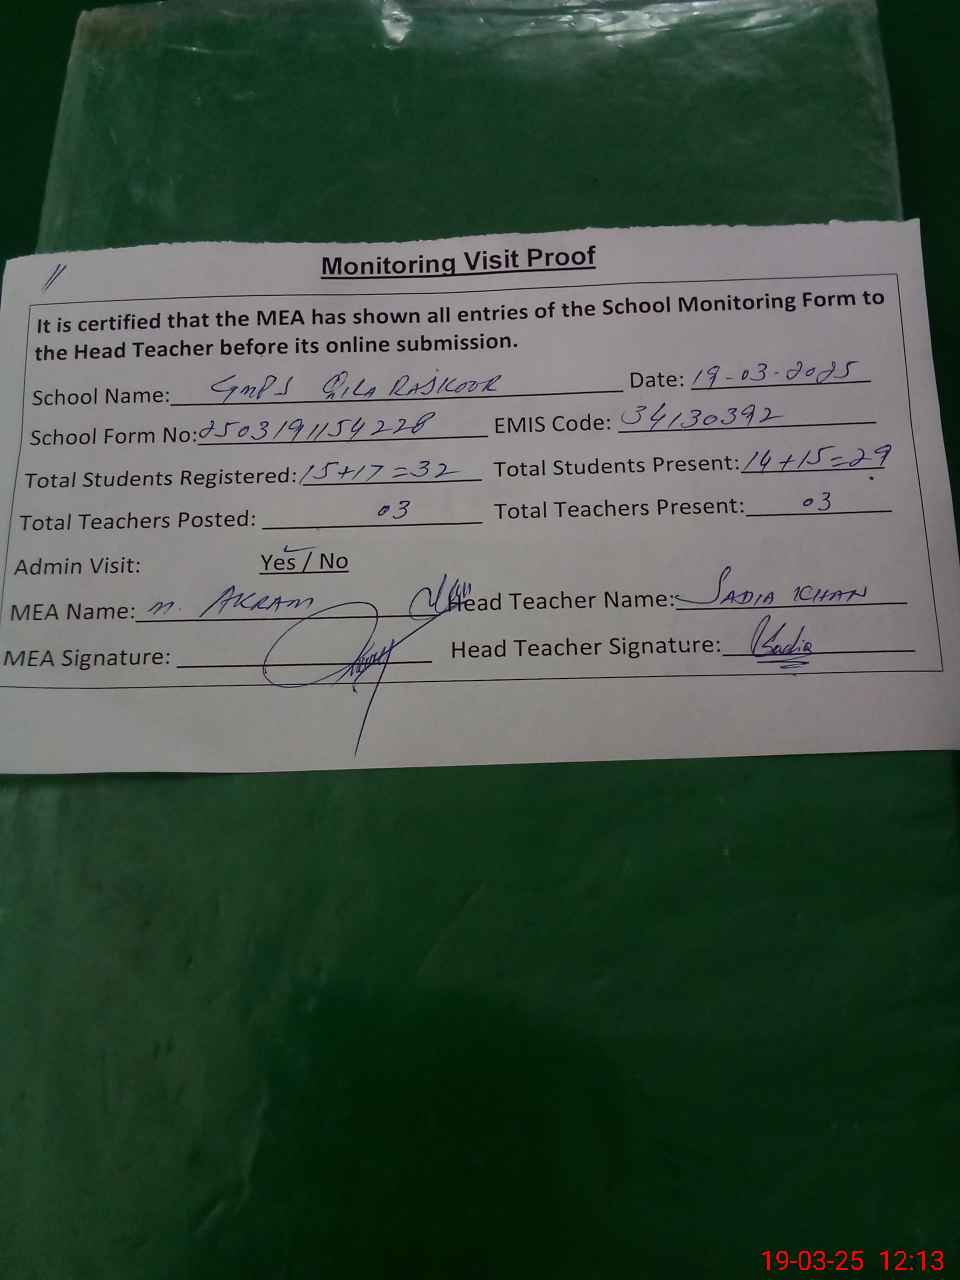 Monitoring Visit Proof
It is certified that the MEA has shown all entries of the School Monitoring Form to
the Head Teacher before its online submission.
School Name: GMPS QILA RAJKOOR Date: 19-03-2025
School Form No: 2503191154228 EMIS Code: 34130392
Total Students Registered: 15+17=32 Total Students Present: 14+15=29
Total Teachers Posted: 03 Total Teachers Present: 03
Admin Visit: Yes / No
MEA Name: M. AKRAM Head Teacher Name: SADIA KHAN
MEA Signature: Head Teacher Signature: Sadia
19-03-25 12:13